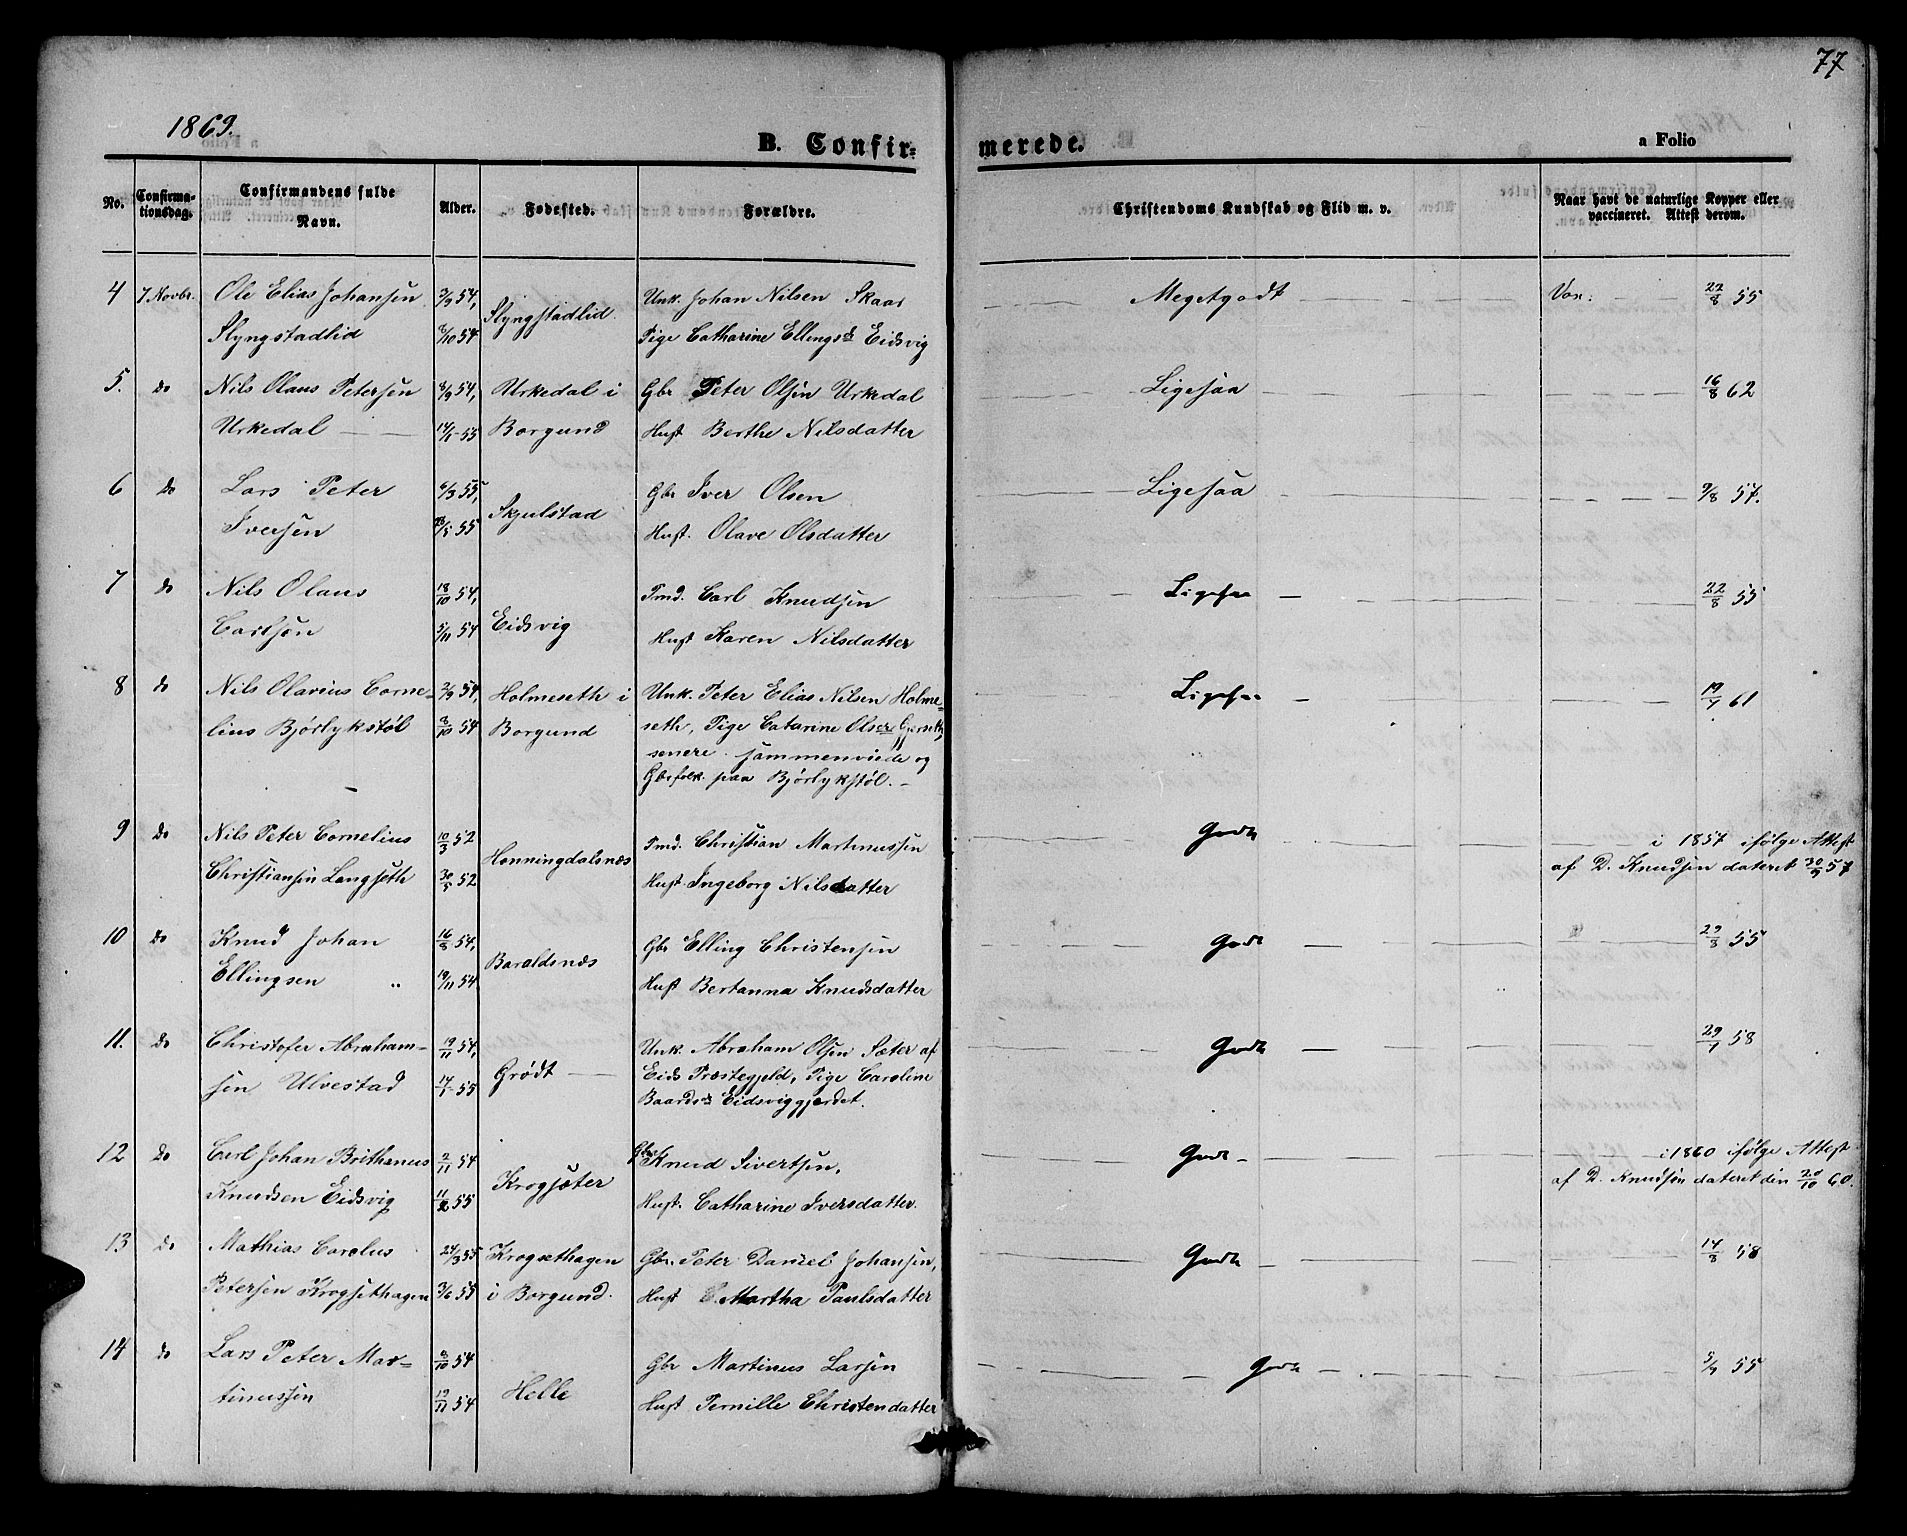 77
1869.
B. Confir=
merede.
a Folio
No.
Confirma-
tionsdag.
Confirmandens fulde
Navn.
Alder.
Fødested.
Forældre.
Christendoms Kundskab og Flid m. v.
Naar havt de naturlige Kopper eller
vaccineret. Attest derom.
4 7 Novbr. Ole Elias Johansen 3/9 54, Slyngstadlid. Unk. Johan Nilsen Skaar Megetgodt Vac: 22/8 55
Slyngstadlid 8/10 54 Pige Catharine Ellingsd Eidsvig
5. do Nils Olaus Petersen 8/9 54, Urkedal i Gbr Peter Olsen Urkedal Ligesaa 16/8 62
Urkedal 14/1 55 Borgund Hust Berthe Nilsdatter
6 do Lars Peter 6/3 55, Skjulstad Gbr Iver Olsen Ligesaa 9/8 57.
Iversen 55 Hust. Olave Olsdatter
7 do Nils Olaus 18/10 54, Eidsvig Pmd. Carl Knudsen Ligesaa 22/8 55
Carlsen 5/11 54 Hust Karen Nilsdatter
8 do Nils Olavius Corne- 2/9 54, Holmeseth i Unk. Peter Elias Nilsen Holme- Ligesaa 19/7 61
lius Bjørlykstøl 8/10 54 Borgund seth, Pige Catarine Olsdr Gjerseth,
senere sammenviede og
Gbrfolk paa Bjørlykstøl.
9 do Nils Peter Cornelius 10/3 52 Honningdalsnæs Pmd. Christian Martinussen Godt i 1857 ifølge Attest
Christiansen Langseth 30/5 52 Hust Ingeborg Nilsdatter af D. Knudsen dateret 30/9 57
10 do Knud Johan 16/8 54, Baraldsnæs Gbr Elling Christensen Godt 29/8 55
Ellingsen „ 19/11 54 Hust Bertanna Knudsdatter
11. do Christofer Abraham- 19/11 54, Grødt Unk. Abraham Olsen Sæter af Godt 29/7 58
sen Ulvestad 14/1 55 Eids Præstegjeld, Pige Caroline
Baardsd Eidsviggjerdet.
12 do Carl Johan Brithanus 2/11 54 Krogsæter Gbr Knud Sivertsen, Godt i 1860 ifølge Attest
Knudsen Eidsvig 11/2 55 Hust. Catharine Iversdatter. af D. Knudsen dateret den 20/10 60.
13 do Mathias Carolus 24/3 55 Krogsethagen Gbr. Peter Daniel Johansen, Godt 14/8 58
Petersen Krogsethagen 3/6 55 i Borgund. Hust Martha Paulsdatter
14 do Lars Peter Mar- 8/10 54 Helle Gbr Martinus Larsen Godt 5/9 55
tinussen 19/11 54 Hust Pernille Christendatter